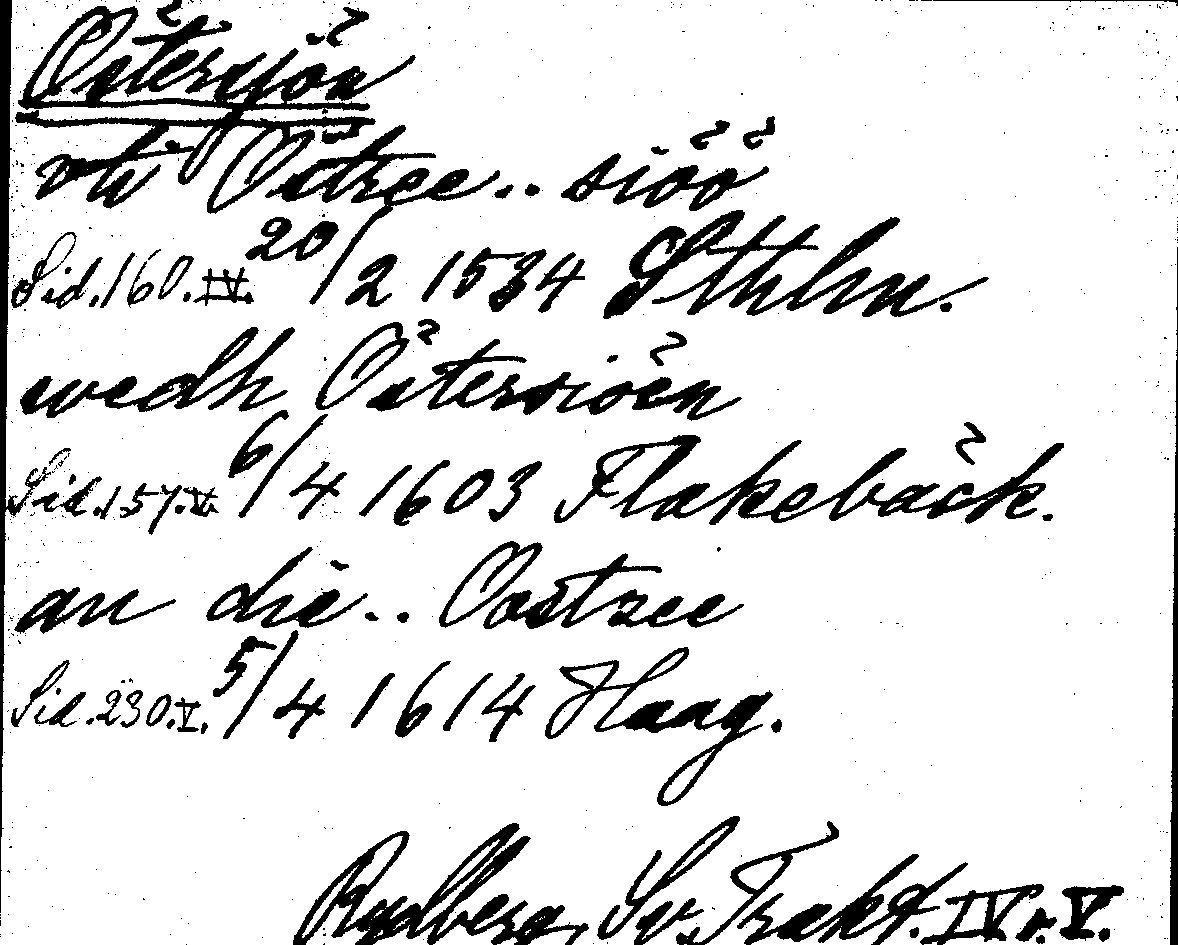 Östersjön
vti Östree.. siöö
Sid. 160. IV. 20/2 1534 Sthlm.
wedh Östersiöen
Sid. 157. V. 6/4 1603 Flakebäck.
an die.. Oostzee
Sid. 230. V. 5/4 1614 Haag.
Rydberg, Sv. Trakt. IV o. V.